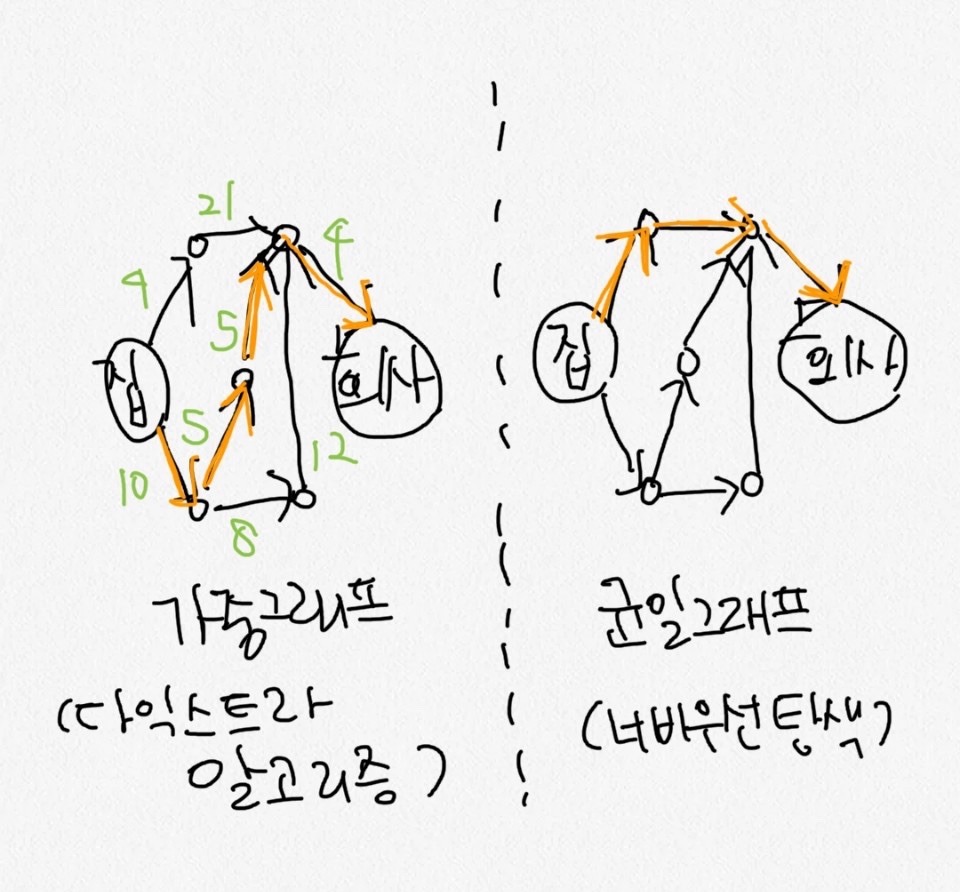 21
4
4
5
집
회사
5
10
12
8
가중그래프
(다익스트라
알고리즘)
집
회사
균일그래프
(너비우선탐색)